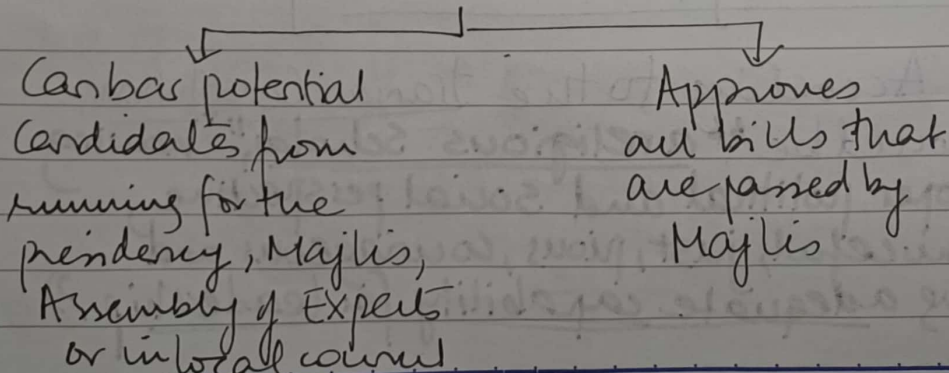 Can bar potential
candidates from
running for the
presidency, Majlis,
Assembly of Experts
or in local council
Approves
all bills that
are passed by
Majlis